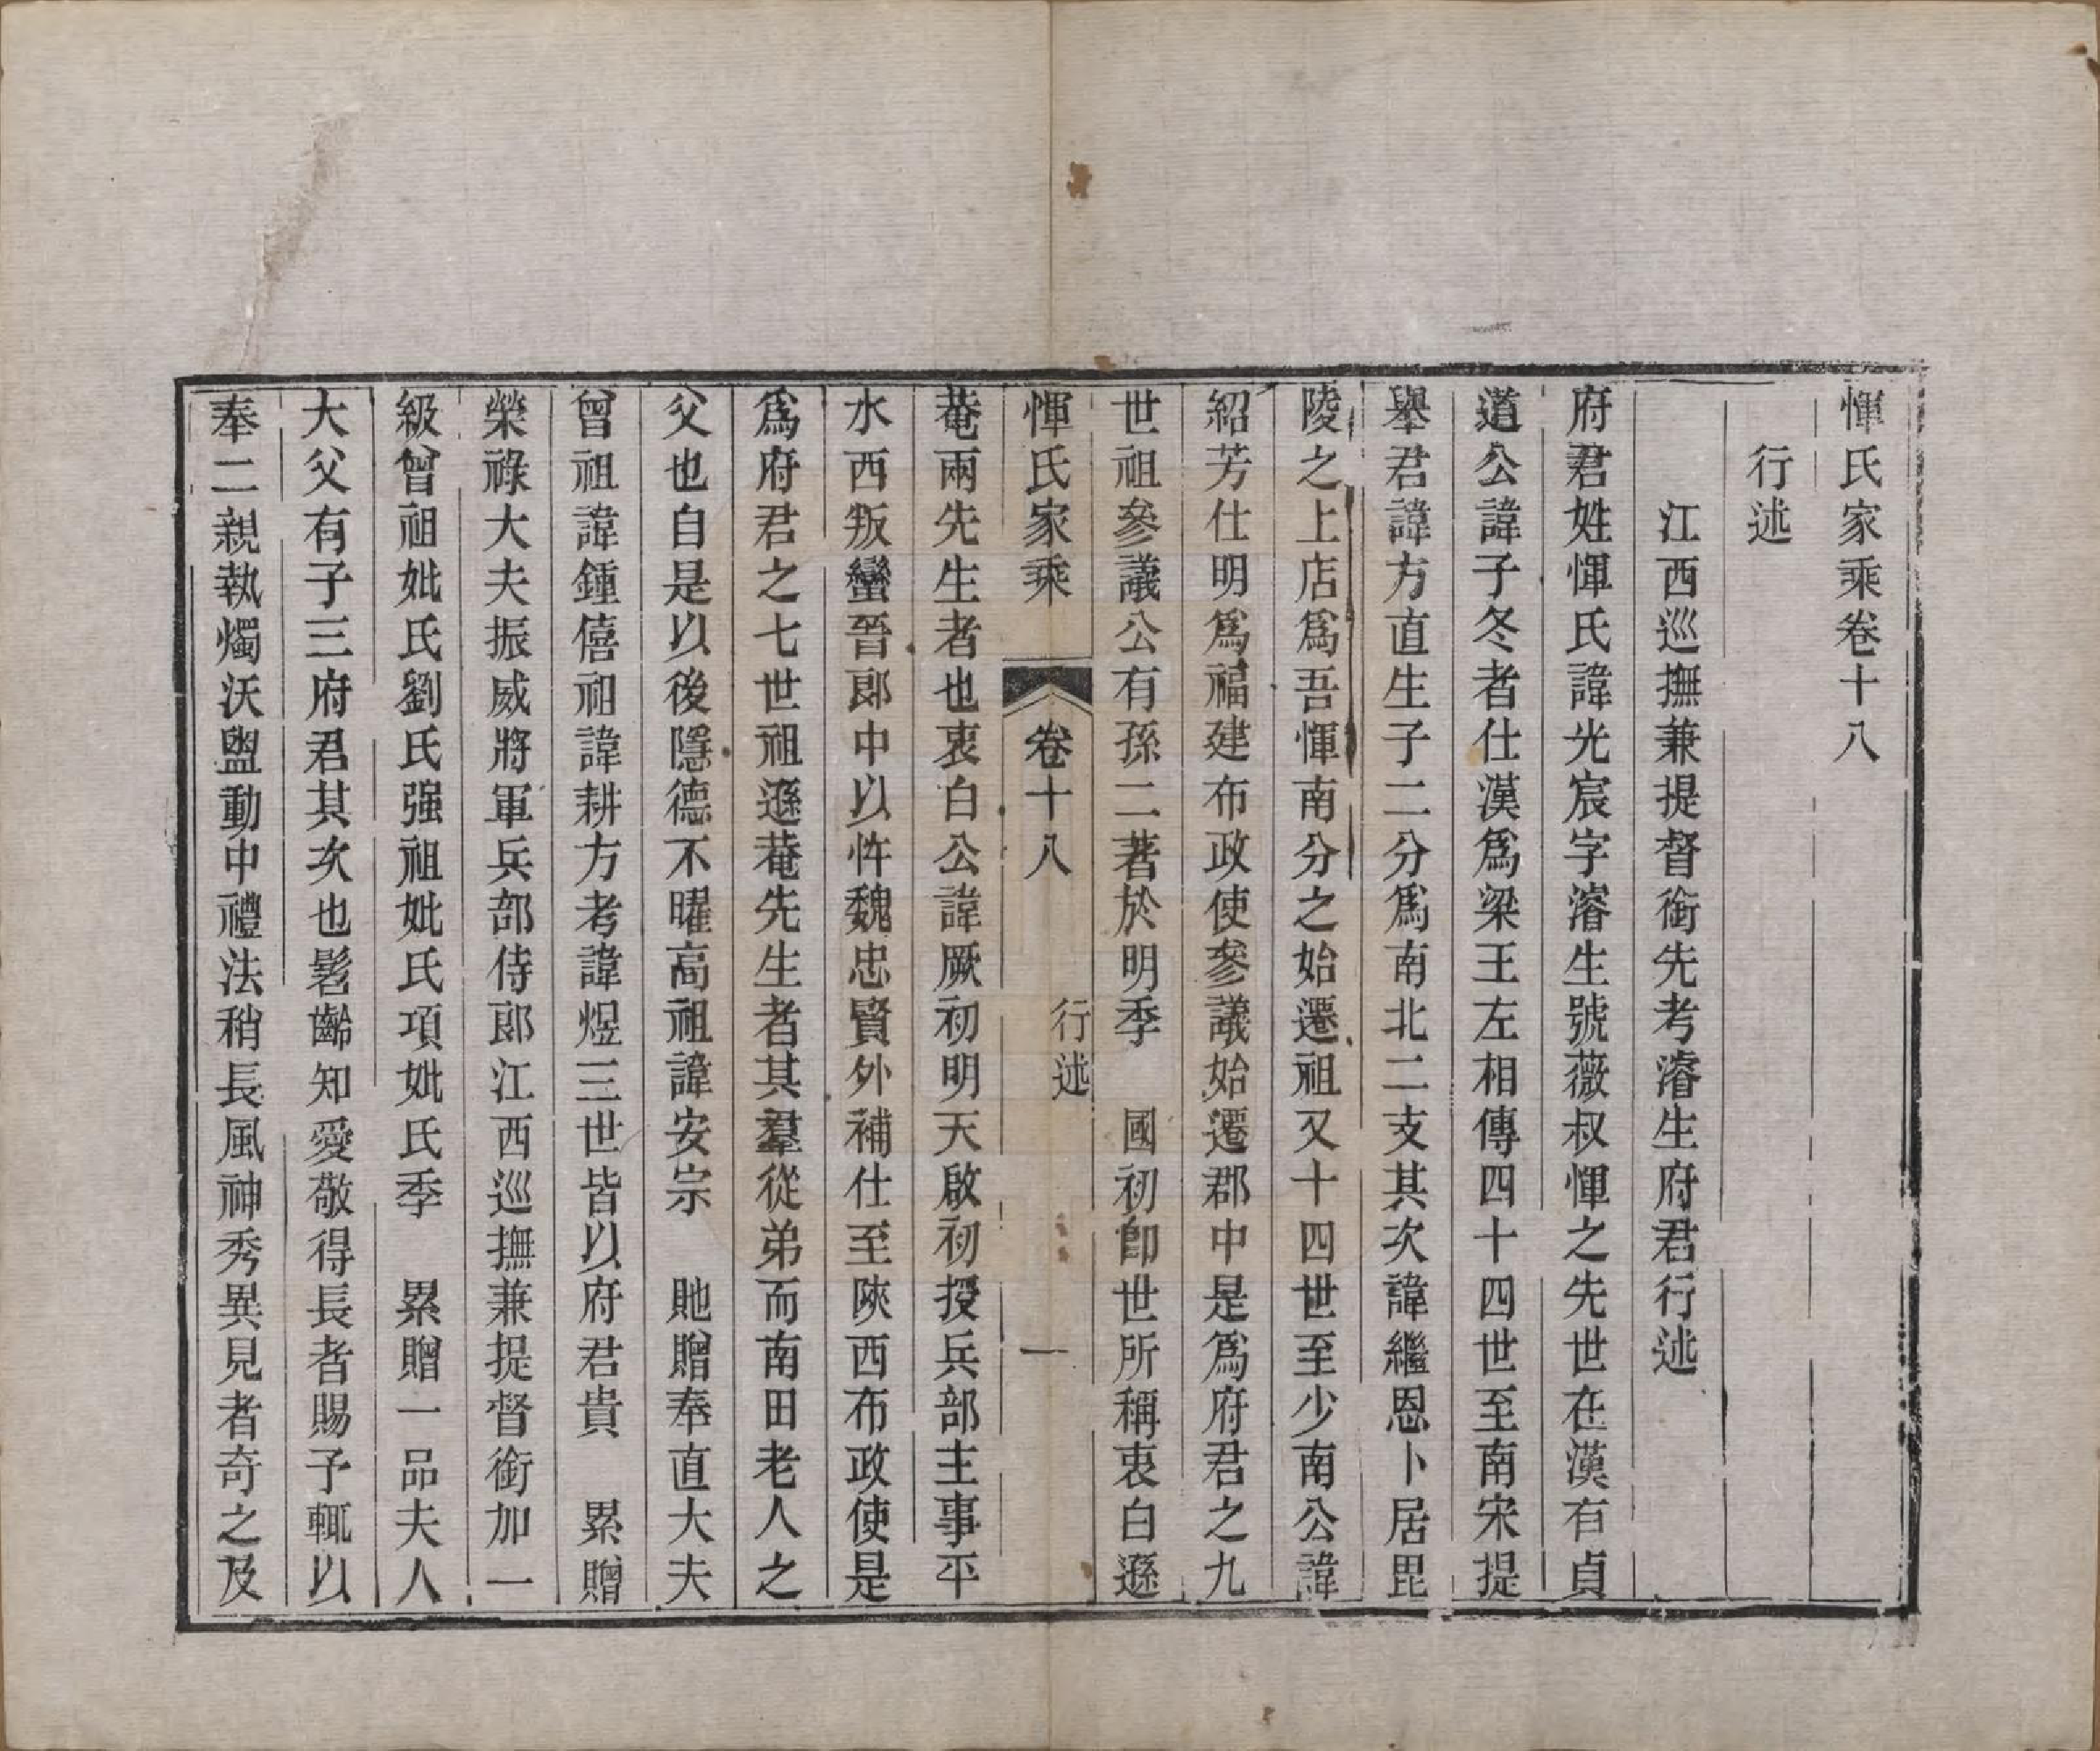 惲氏家乘卷十八
行述
江西巡撫兼提督銜先考濬生府君行述
府君姓惲氏諱光宸字濬生號薇叔惲之先世在漢有貞
道公諱子冬者仕漢爲梁王左相傳四十四世至南宋提
舉君諱方直生子二分爲南北二支其次諱繼恩卜居毘
陵之上店爲吾惲南分之始遷祖又十四世至少南公諱
紹芳仕明爲福建布政使參議始遷郡中是爲府君之九
世祖參議公有孫二著於明季 國初卽世所稱衷白遜
惲氏家乘 卷十八 行述 一
菴兩先生者也衷白公諱厥初明天啟初授兵部主事平
水西叛蠻晉郎中以忤魏忠賢外補仕至陝西布政使是
爲府君之七世祖遜菴先生者其羣從弟而南田老人之
父也自是以後隱德不曜高祖諱安宗 貤贈奉直大夫
曾祖諱鍾僖祖諱耕方考諱煜三世皆以府君貴 累贈
榮祿大夫振威將軍兵部侍郎江西巡撫兼提督銜加一
級曾祖妣氏劉氏强祖妣氏項妣氏季 累贈一品夫人
大父有子三府君其次也髫齡知愛敬得長者賜予輒以
奉二親執燭沃盥動中禮法稍長風神秀異見者奇之及